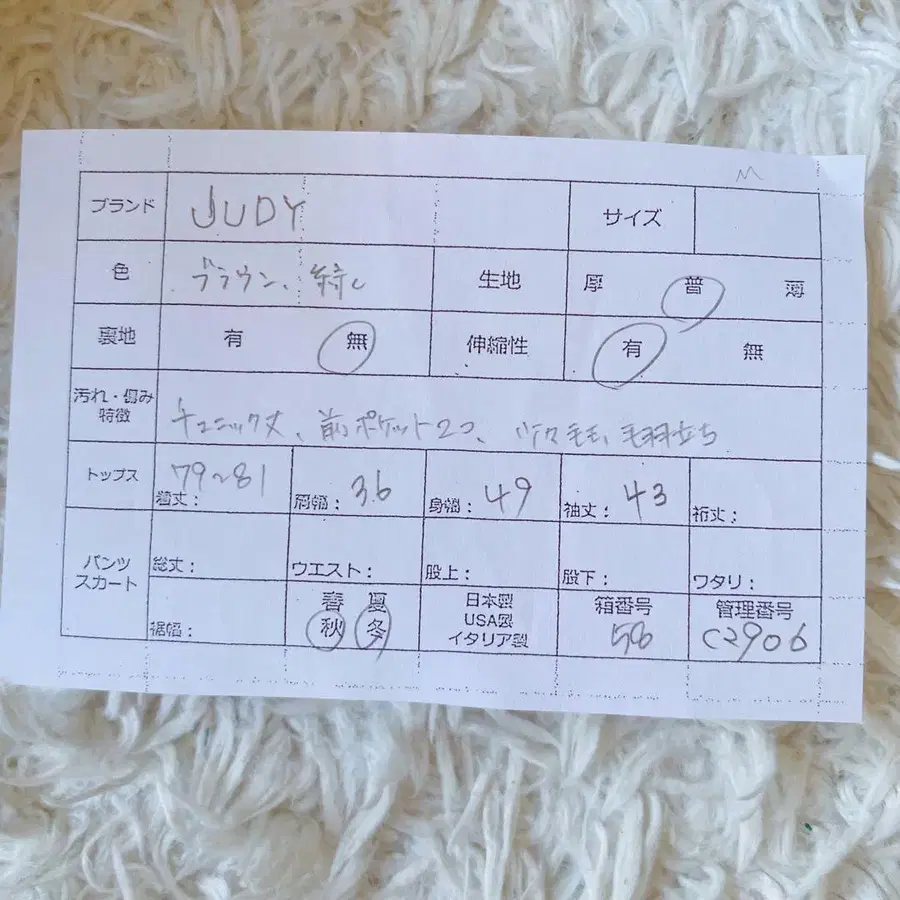 M
ブランド JUDY サイズ
色 ブラウン、 生地 厚 普 薄
裏地 有 無 伸縮性 有 無
汚れ・傷み
特徴 チュニック丈、前ポケット2コ、 毛羽立ち
トップス 着丈: 79~81 肩幅: 36 身幅: 49 袖丈: 43 裄丈:
パンツ
スカート 総丈: ウエスト: 股上: 股下: ワタリ:
裾幅: 春 夏
秋 冬
日本製
USA製
イタリア製
箱番号
58
管理番号
C2906